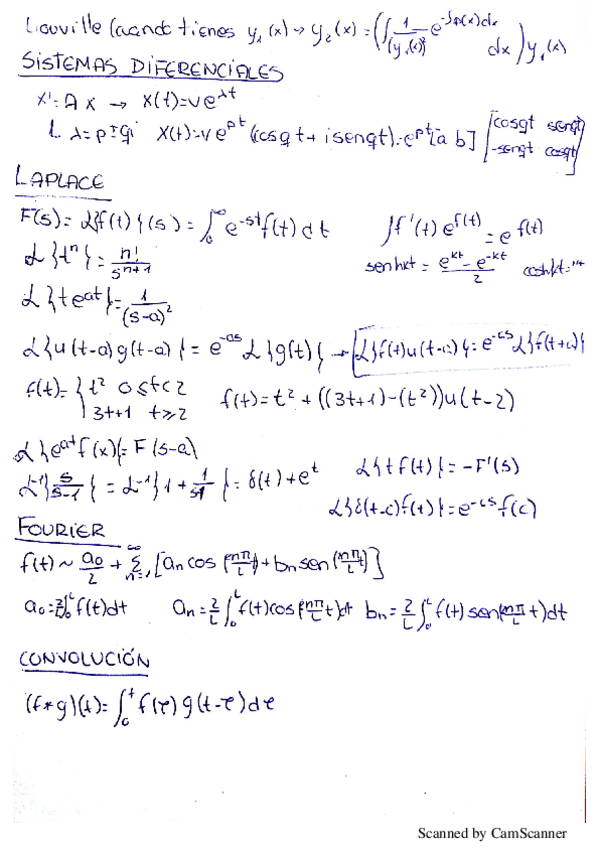 Liouville Cuando tienes y₁(x) → y₂(x) = (∫ 1/(y₁(x))² e^(-∫p(x)dx) dx) y₁(x)
SISTEMAS DIFERENCIALES
x' = Ax → x(t) = ve^(λt)
λ = p ∓ qi x(t) = ve^(pt) (cosqt + isenqt) = e^(pt) [a b] [cosqt senqt / -senqt cosqt]
LAPLACE
F(s) = L{f(t)}(s) = ∫₀^∞ e^(-st) f(t) dt ∫f'(t) e^(f(t)) = e^(f(t))
L{tⁿ} = n!/s^(n+1) senhkt = (e^(kt) - e^(-kt))/2 coshkt = "+"
L{te^(at)} = 1/(s-a)²
L{u(t-a)g(t-a)} = e^(-as) L{g(t)} → L{f(t)u(t-c)} = e^(-cs) L{f(t+c)}
f(t) = { t² 0≤t<2 f(t) = t² + ((3t+1)-(t²))u(t-2)
3t+1 t≥2
L{e^(at) f(x)} = F(s-a)
L⁻¹{s/(s-1)} = L⁻¹{1 + 1/(s-1)} = δ(t) + e^t L{tf(t)} = -F'(s)
L{δ(t-c)f(t)} = e^(-cs) f(c)
FOURIER
f(t) ~ a₀/2 + Σ_(n=1)^∞ [aₙ cos(nπ/L t) + bₙ sen(nπ/L t)]
a₀ = 2/L ∫₀^L f(t)dt aₙ = 2/L ∫₀^L f(t) cos(nπ/L t)dt bₙ = 2/L ∫₀^L f(t) sen(nπ/L t)dt
CONVOLUCIÓN
(f*g)(t) = ∫₀^t f(τ) g(t-τ) dτ
Scanned by CamScanner